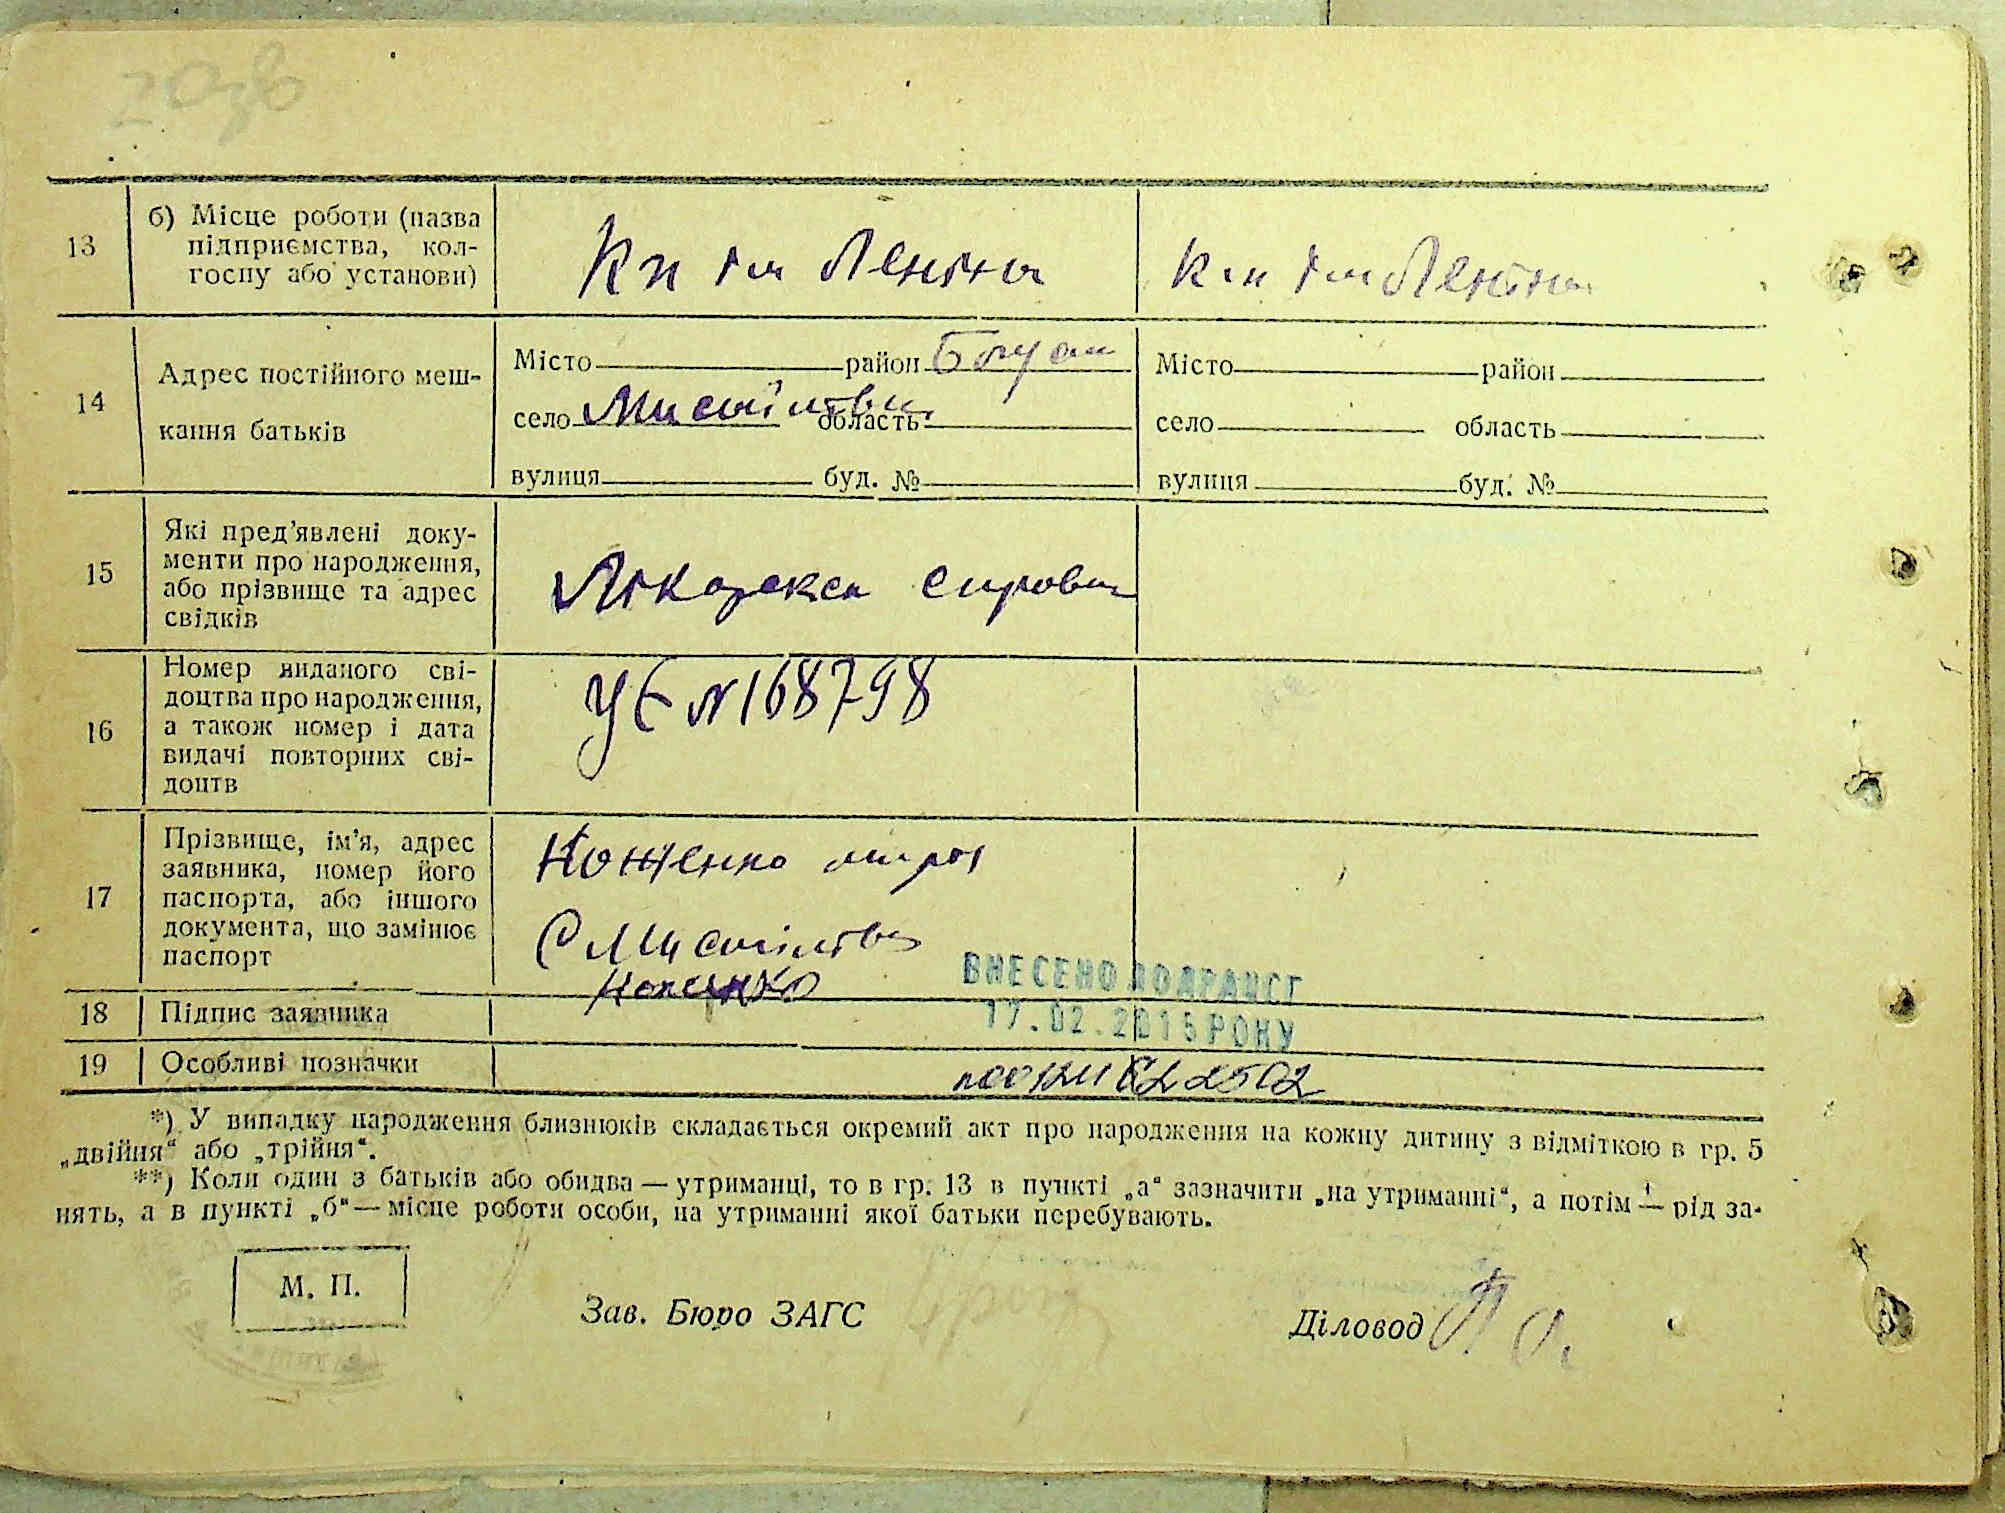 13
б) Місце роботи (назва
підприємства, кол-
госпу або установи)
Кп ім Леніна
К-п ім Леніна
14
Адрес постійного меш-
кання батьків
Місто район
село область
вулиця буд. №
Місто район
село область
вулиця буд. №
15
Які пред’явлені доку-
менти про народження,
або прізвище та адрес
свідків
16
Номер виданого сві-
доцтва про народження,
а також номер і дата
видачі повторних сві-
доцтв
УЄ №168798
17
Прізвище, ім’я, адрес
заявника, номер його
паспорта, або іншого
документа, що замінює
паспорт
Коженко
С
ВНЕСЕНО ДО ДРАЦСГ
17.02.2015 РОКУ
18
Підпис заявника
19
Особливі позначки
*) У випадку народження близнюків складається окремий акт про народження на кожну дитину з відміткою в гр. 5
„двійня“ або „трійня“.
**) Коли один з батьків або обидва — утриманці, то в гр. 13 в пункті „а“ зазначити „на утриманні“, а потім — рід за-
нять, а в пункті „б“ — місце роботи особи, на утриманні якої батьки перебувають.
М. П.
Зав. Бюро ЗАГС
Діловод